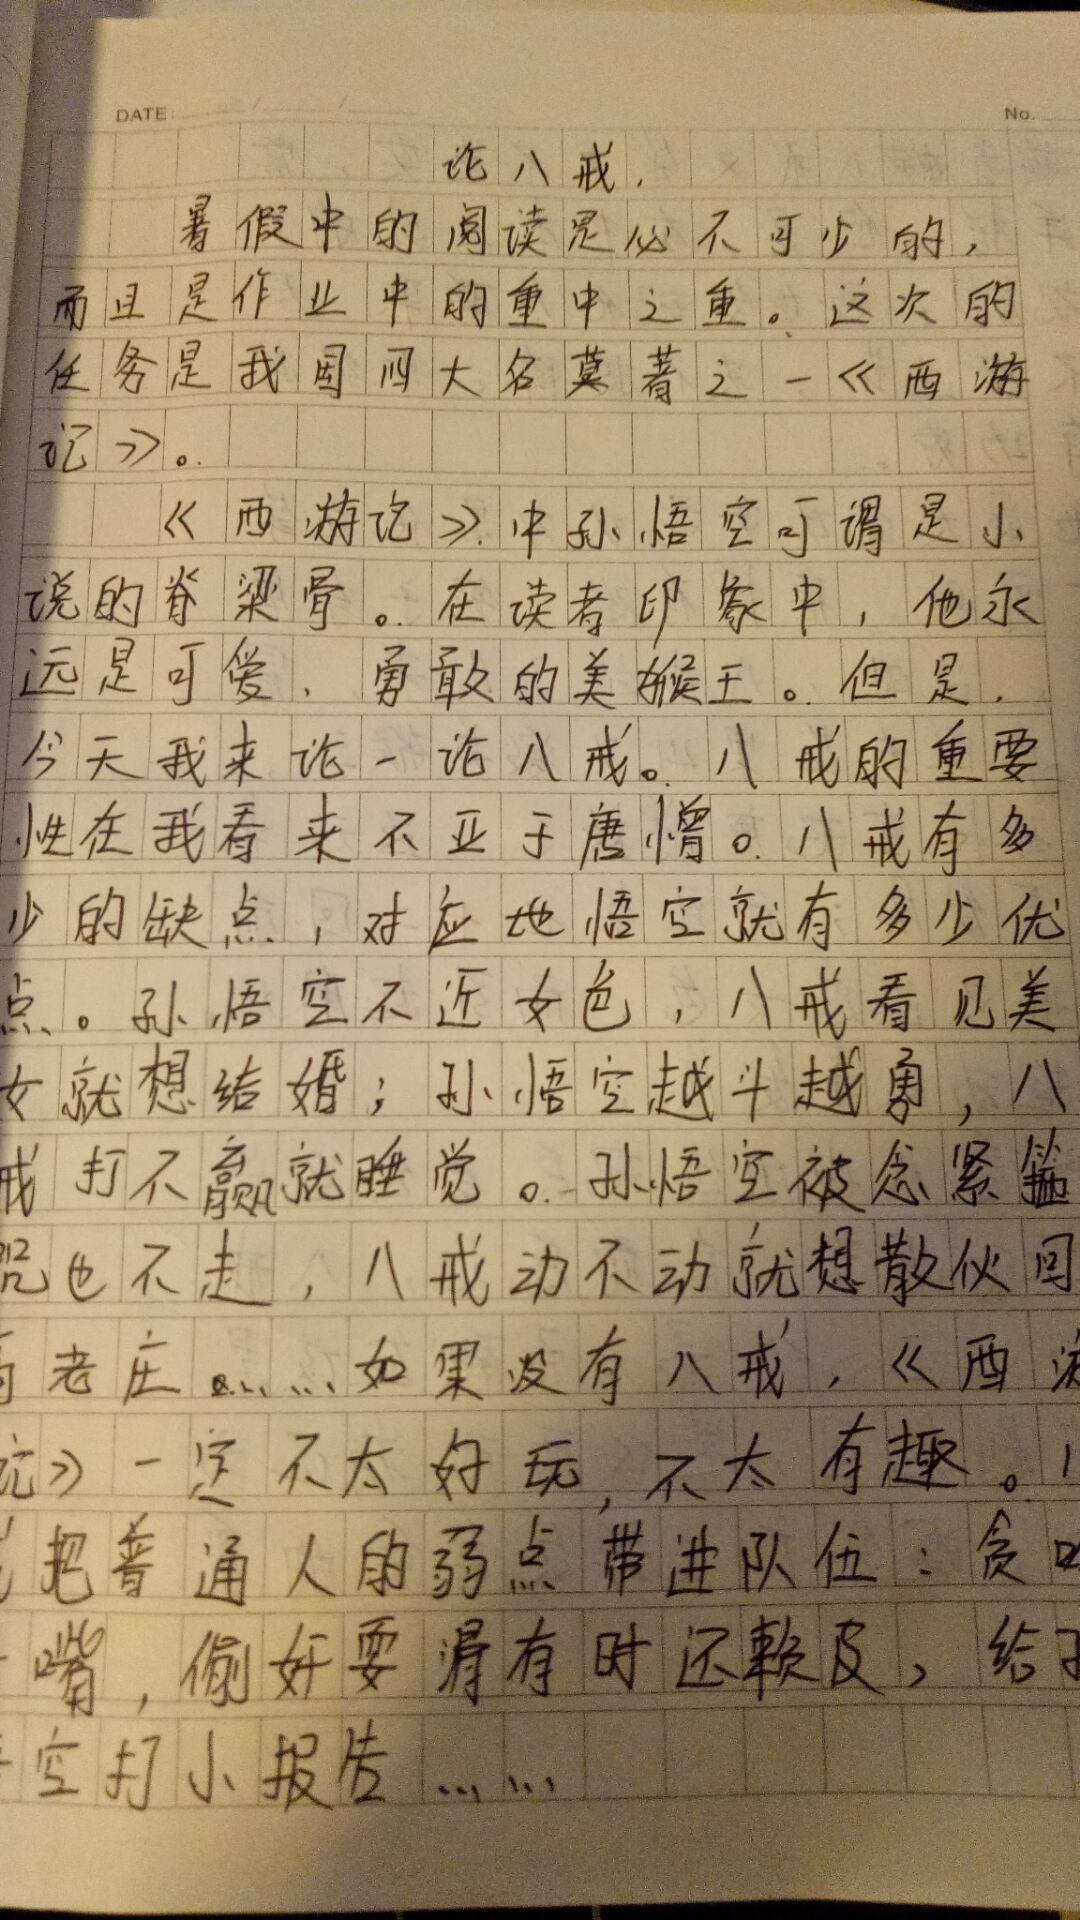 DATE:
No.
论八戒.
暑假中的阅读是必不可少的,
而且是作业中的重中之重。这次的
任务是我国四大名莫著之一《西游
记》。
《西游记》中孙悟空可谓是小
说的脊梁骨。在读者印象中,他永
远是可爱、勇敢的美猴王。但是,
今天我来论一论八戒。八戒的重要
性在我看来不亚于唐憎。八戒有多
少的缺点,对应地悟空就有多少优
点。孙悟空不近女色,八戒看见美
女就想结婚;孙悟空越斗越勇,八
戒打不赢就睡觉。孙悟空被念紧箍
咒也不走,八戒动不动就想散伙回
高老庄……如果没有八戒,《西游
记》一定不太好玩,不太有趣。八
戒把普通人的弱点带进队伍:贪吃
嘴,偷奸耍滑有时还赖皮,给孙
悟空打小报告……